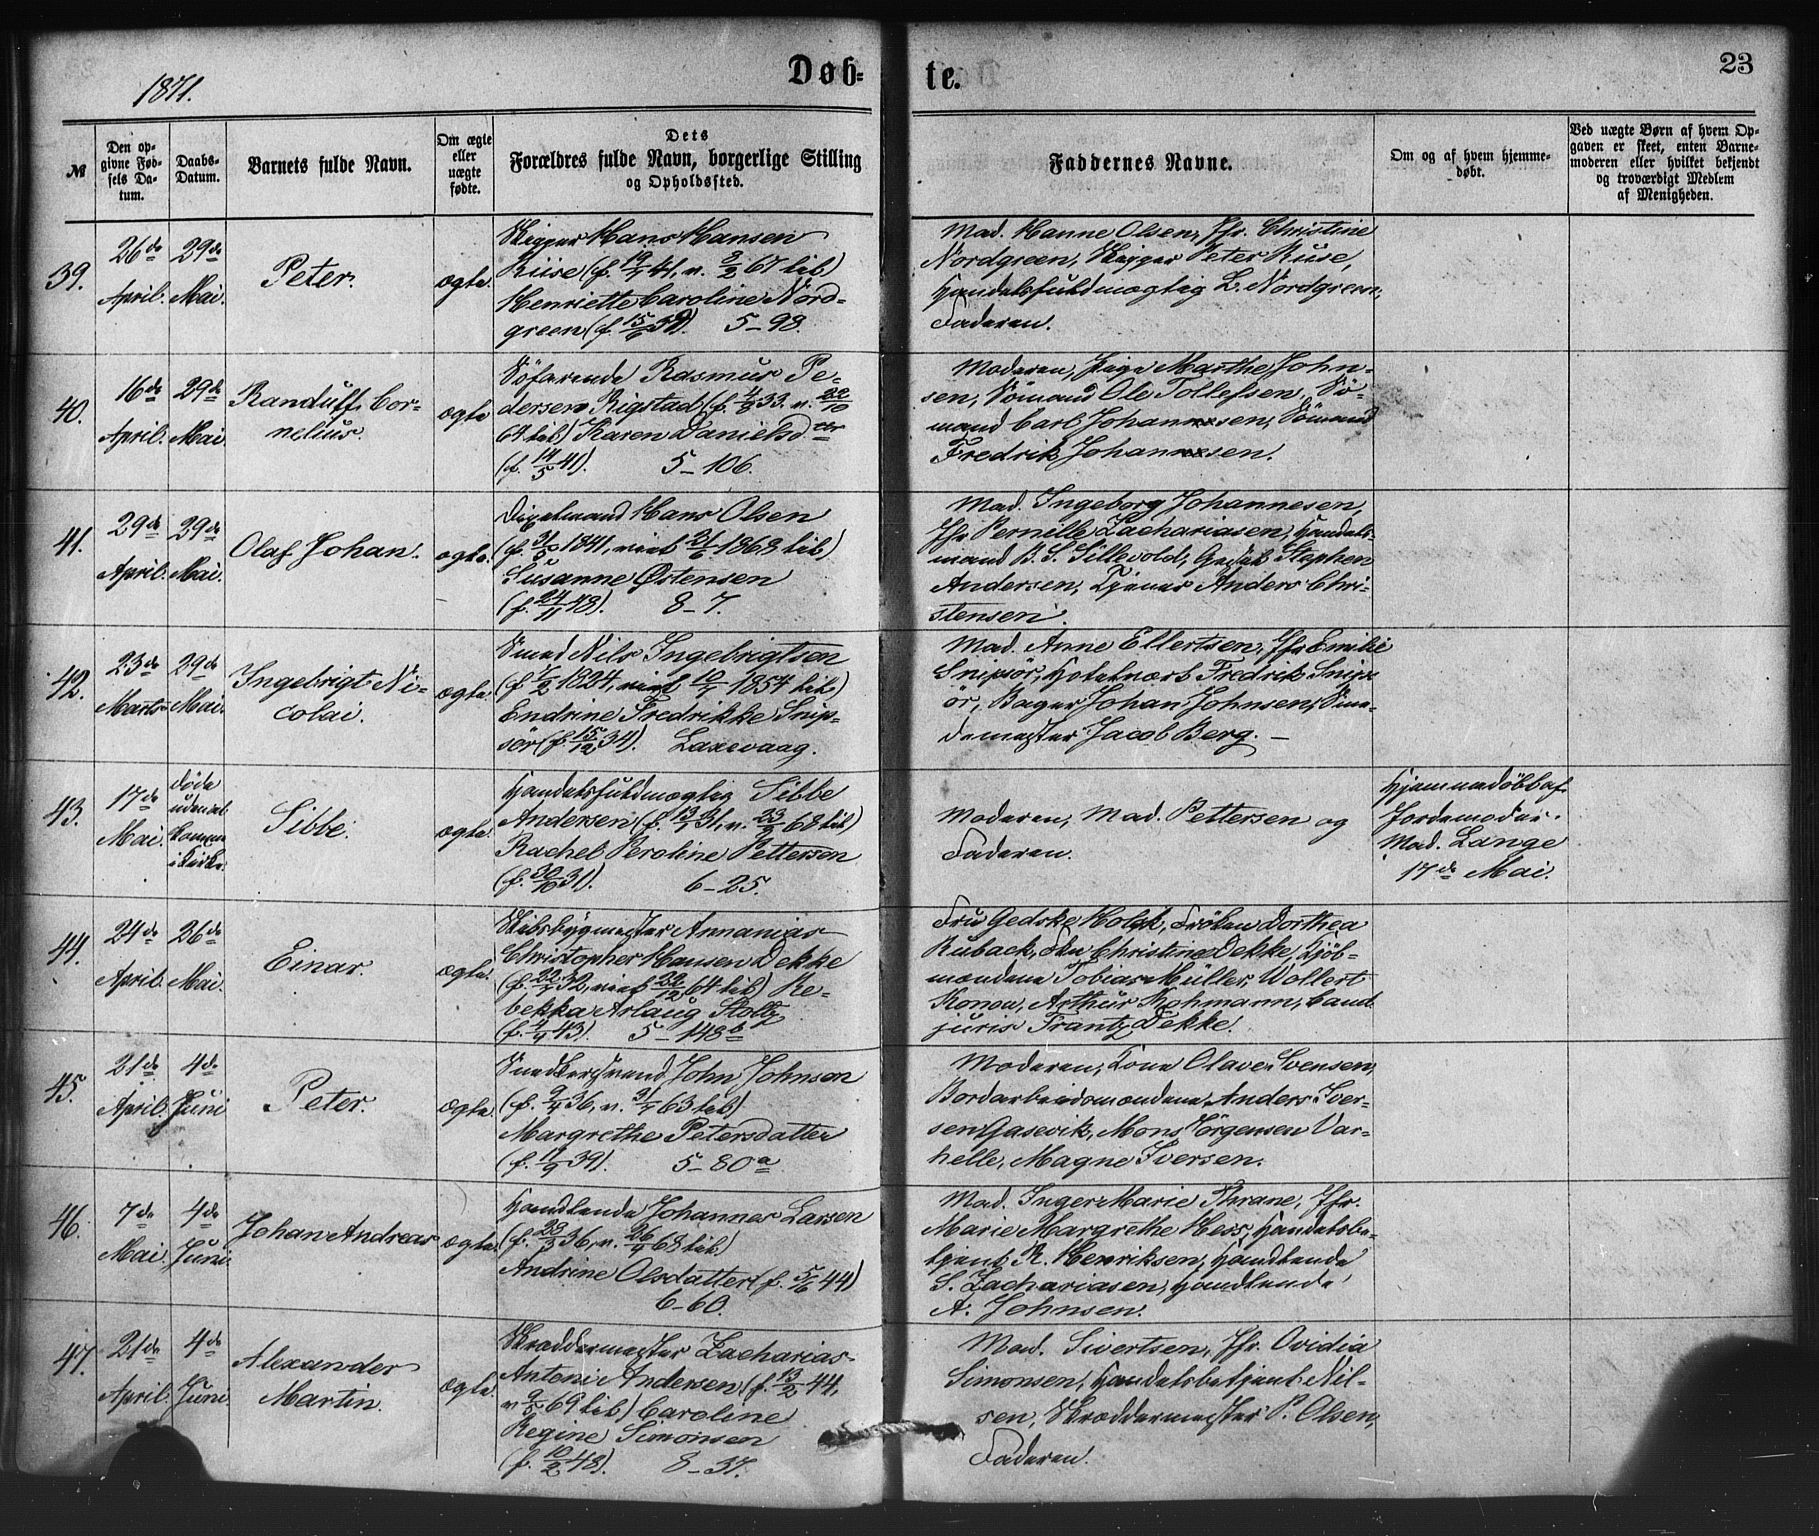 1871.
Døb-
te.
23
№
Den op-
givne Fød-
sels Da-
tum.
Daabs-
Datum.
Barnets fulde Navn.
Om ægte
eller
uægte
fødte.
Dets
Forældres fulde Navn, borgerlige Stilling
og Opholdssted.
Faddernes Navne.
Om og af hvem hjemme-
døbt.
Ved uægte Børn af hvem Op-
gaven er skeet, enten Barne-
moderen eller hvilket bekjendt
og troværdigt Medlem
af Menigheden.
39.
26de
April.
29de
Mai.
Peter.
ægte.
Skipper Hans Hansen
Riise (f. 19/7 41, v. 2/2 67 lib)
Henriette Caroline Nord-
green (f. 15/9 39). 5-98.
Mad. Hanne Olsen, Jfr. Christine
Nordgreen, Skipper Peter Riise,
Handelsfuldmægtig L. Nordgreen,
Faderen.
40.
16de
April.
29de
Mai.
Randulf Cor-
nelius.
ægte
Søfarende Rasmus Pe-
dersen Rigstad (f. 4/8 33. v. 22/10
64 lib) Karen Danielsdtr
(f. 14/5 41). 5-106.
Moderen, Pige Marthe John-
sen, Sømand Ole Tollefsen, Sø-
mand Carl Johannesen, Sømand
Fredrik Johannesen.
41.
29de
April.
29de
Mai.
Olaf Johan.
ægte.
Hans Olsen
(f. 31/8 1841, viet 21/6 1868 lib)
Susanne Østensen
(f. 24/11 48). 8-7.
Mad. Ingeborg Johannesen,
Jfr Pernille Zachariasen, Handels-
mand B. S. Sillevold, Stephen
Andersen, Tjener Anders Chri-
stensen.
42.
23de
Marts
29de
Mai.
Ingebrigt Ni-
colai.
ægte.
Smed Nils Ingebrigtsen
(f. 7/2 1824, viet 10/7 1854 lib)
Endrine Fredrikke Snip-
sør (f. 15/12 34). Laxevaag.
Mad. Anne Ellertsen, Jfr Emilie
Snipsør, Hotelvært Fredrik Snips-
ør, Bager Johan Johnsen, Sme-
demester Jacob Berg. —
43.
17de
Mai.
døde
uden at
komme
i Kirke.
Sibbe.
ægte.
Handelsfuldmægtig Sibbe
Andersen (f. 13/7 31, v. 23/9 68 lib)
Rachel Peroline Pettersen
(f. 30/10 31). 6-25.
Moderen, Mad. Pettersen og
Faderen.
Hjemmedøbt af
Jordemoder
Mad. Lange
17de Mai.
44.
24de
April.
26de
Mai.
Einar.
ægte.
Skibsbygmester Annanias
Christopher Hansen Dekke
(f. 22/7 32, viet 22/12 64 lib) Re-
bekka Arlaug Stoltz
(f. 4/4 43). 5-148b
Fru Gedske Holdt, Frøken Dorthea
Ruback, Christine Dekke, Kjøb-
mændene Tobias Müller, Wollert
Konow, Arthur Kohmann, Cand.
juris Frantz Dekke.
45.
21de
April.
4de
Juni
Peter.
ægte.
Snedkersvend John Johnsen
(f. 9/4 36, v. 31/7 63 lib)
Margrethe Petersdatter
(f. 17/9 39). 5-80a
Moderen, Kone Olave Svensen,
Bordarbeidsmændene Anders Iver-
sen Gasevik, Mons Jørgensen Var-
helle, Magne Iversen.
46.
7de
Mai.
4de
Juni.
Johan Andreas
ægte.
Handlende Johannes Larsen
(f. 28/3 36, v. 26/4 63 lib.)
Andrine Olsdatter (f. 5/6 44)
6-60.
Mad. Inger Marie Thrane, Jfr.
Marie Margrethe Hess, Handelsbe-
tjent R. Henriksen, Handlende
S. Zachariasen, Handlende
A. Johnsen.
47.
21de
April.
4de
Juni.
Alexander
Martin.
ægte.
Skræddermester Zacharias
Antoni Andersen (f. 13/2 44,
v 9/5 69 lib) Caroline
Regine Simonsen
(f. 10/2 48). 8-37.
Mad. Sivertsen, Jfr. Ovidia
Simonsen, Handelsbetjent Nil-
sen, Skræddermester P. Olsen,
Faderen.